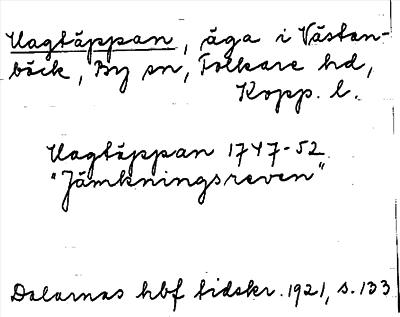 Vagtäppan, äga i Västan-
bäck, By sn, Folkare hd,
Kopp. l.
Vagtäppan 1747-52
"Jämkningsreven"
Dalarnas hbf tidskr. 1921, s. 133